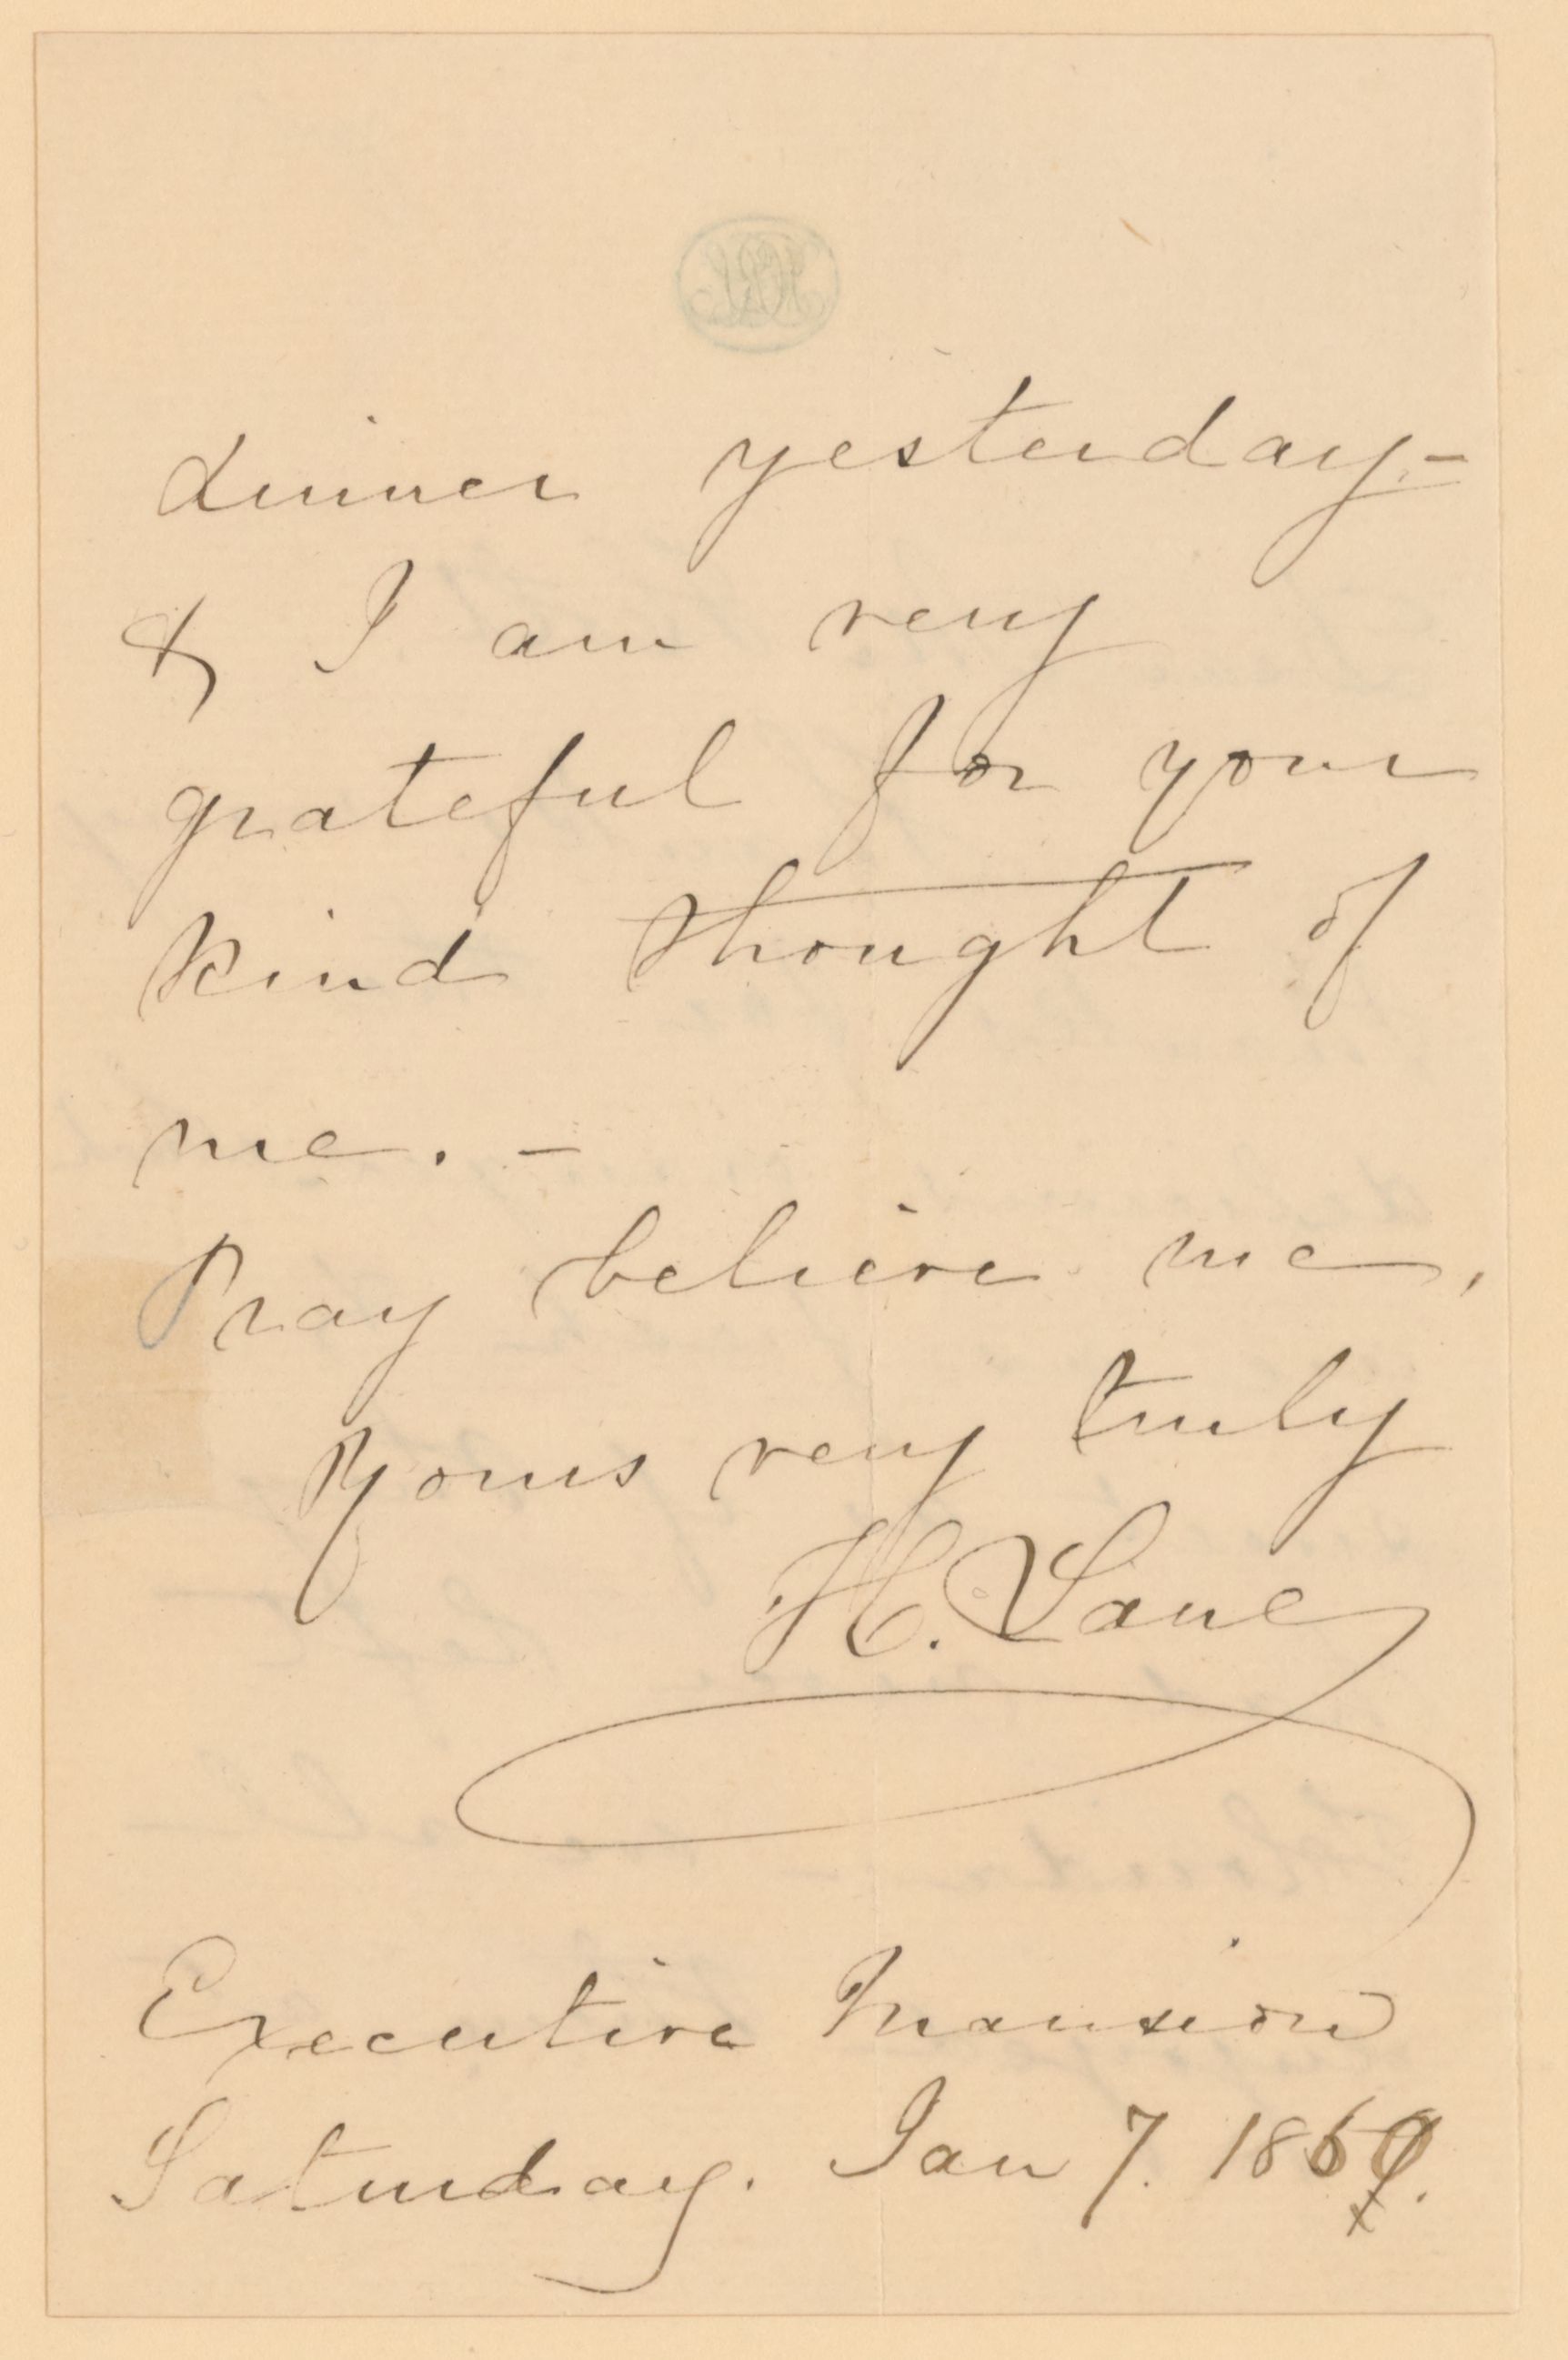 dinner yesterday-
& I am very
grateful for your
kind thought of
me. -
Pray believe me,
Yours very truly
H. Lane
Executive Mansion
Saturday. Jan 7. 1860.